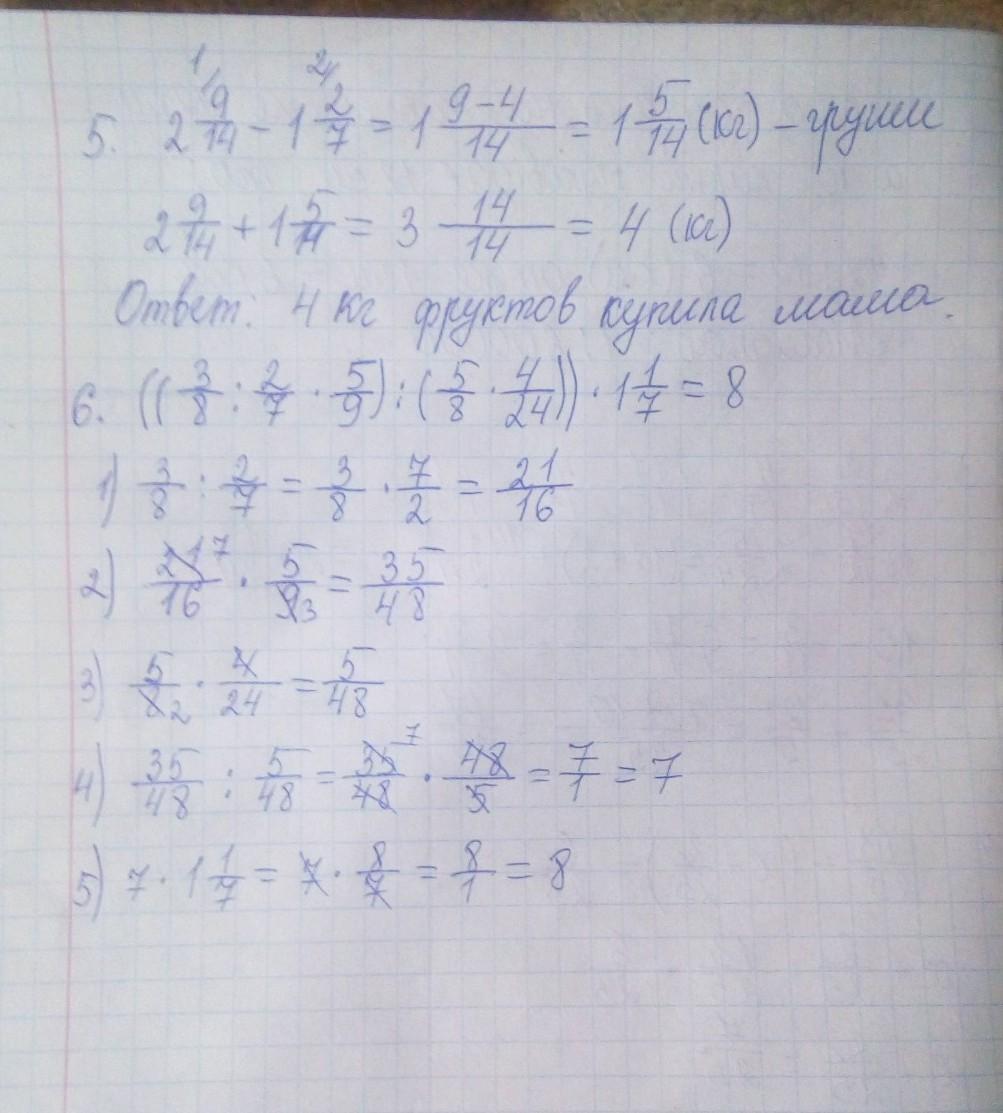 5. 2 9/14 - 1 2/7 = 1 (9-4)/14 = 1 5/14 (кг) - груши
2 9/14 + 1 5/14 = 3 14/14 = 4 (кг)
Ответ: 4 кг фруктов купила мама.
6. ((3/8 : 2/7 · 5/9) : (5/8 · 4/24)) · 1 1/7 = 8
1) 3/8 : 2/7 = 3/8 · 7/2 = 21/16
2) 21/16 · 5/9 = 35/48
3) 5/8 · 4/24 = 5/48
4) 35/48 : 5/48 = 35/48 · 48/5 = 7/1 = 7
5) 7 · 1 1/7 = 7 · 8/7 = 8/1 = 8